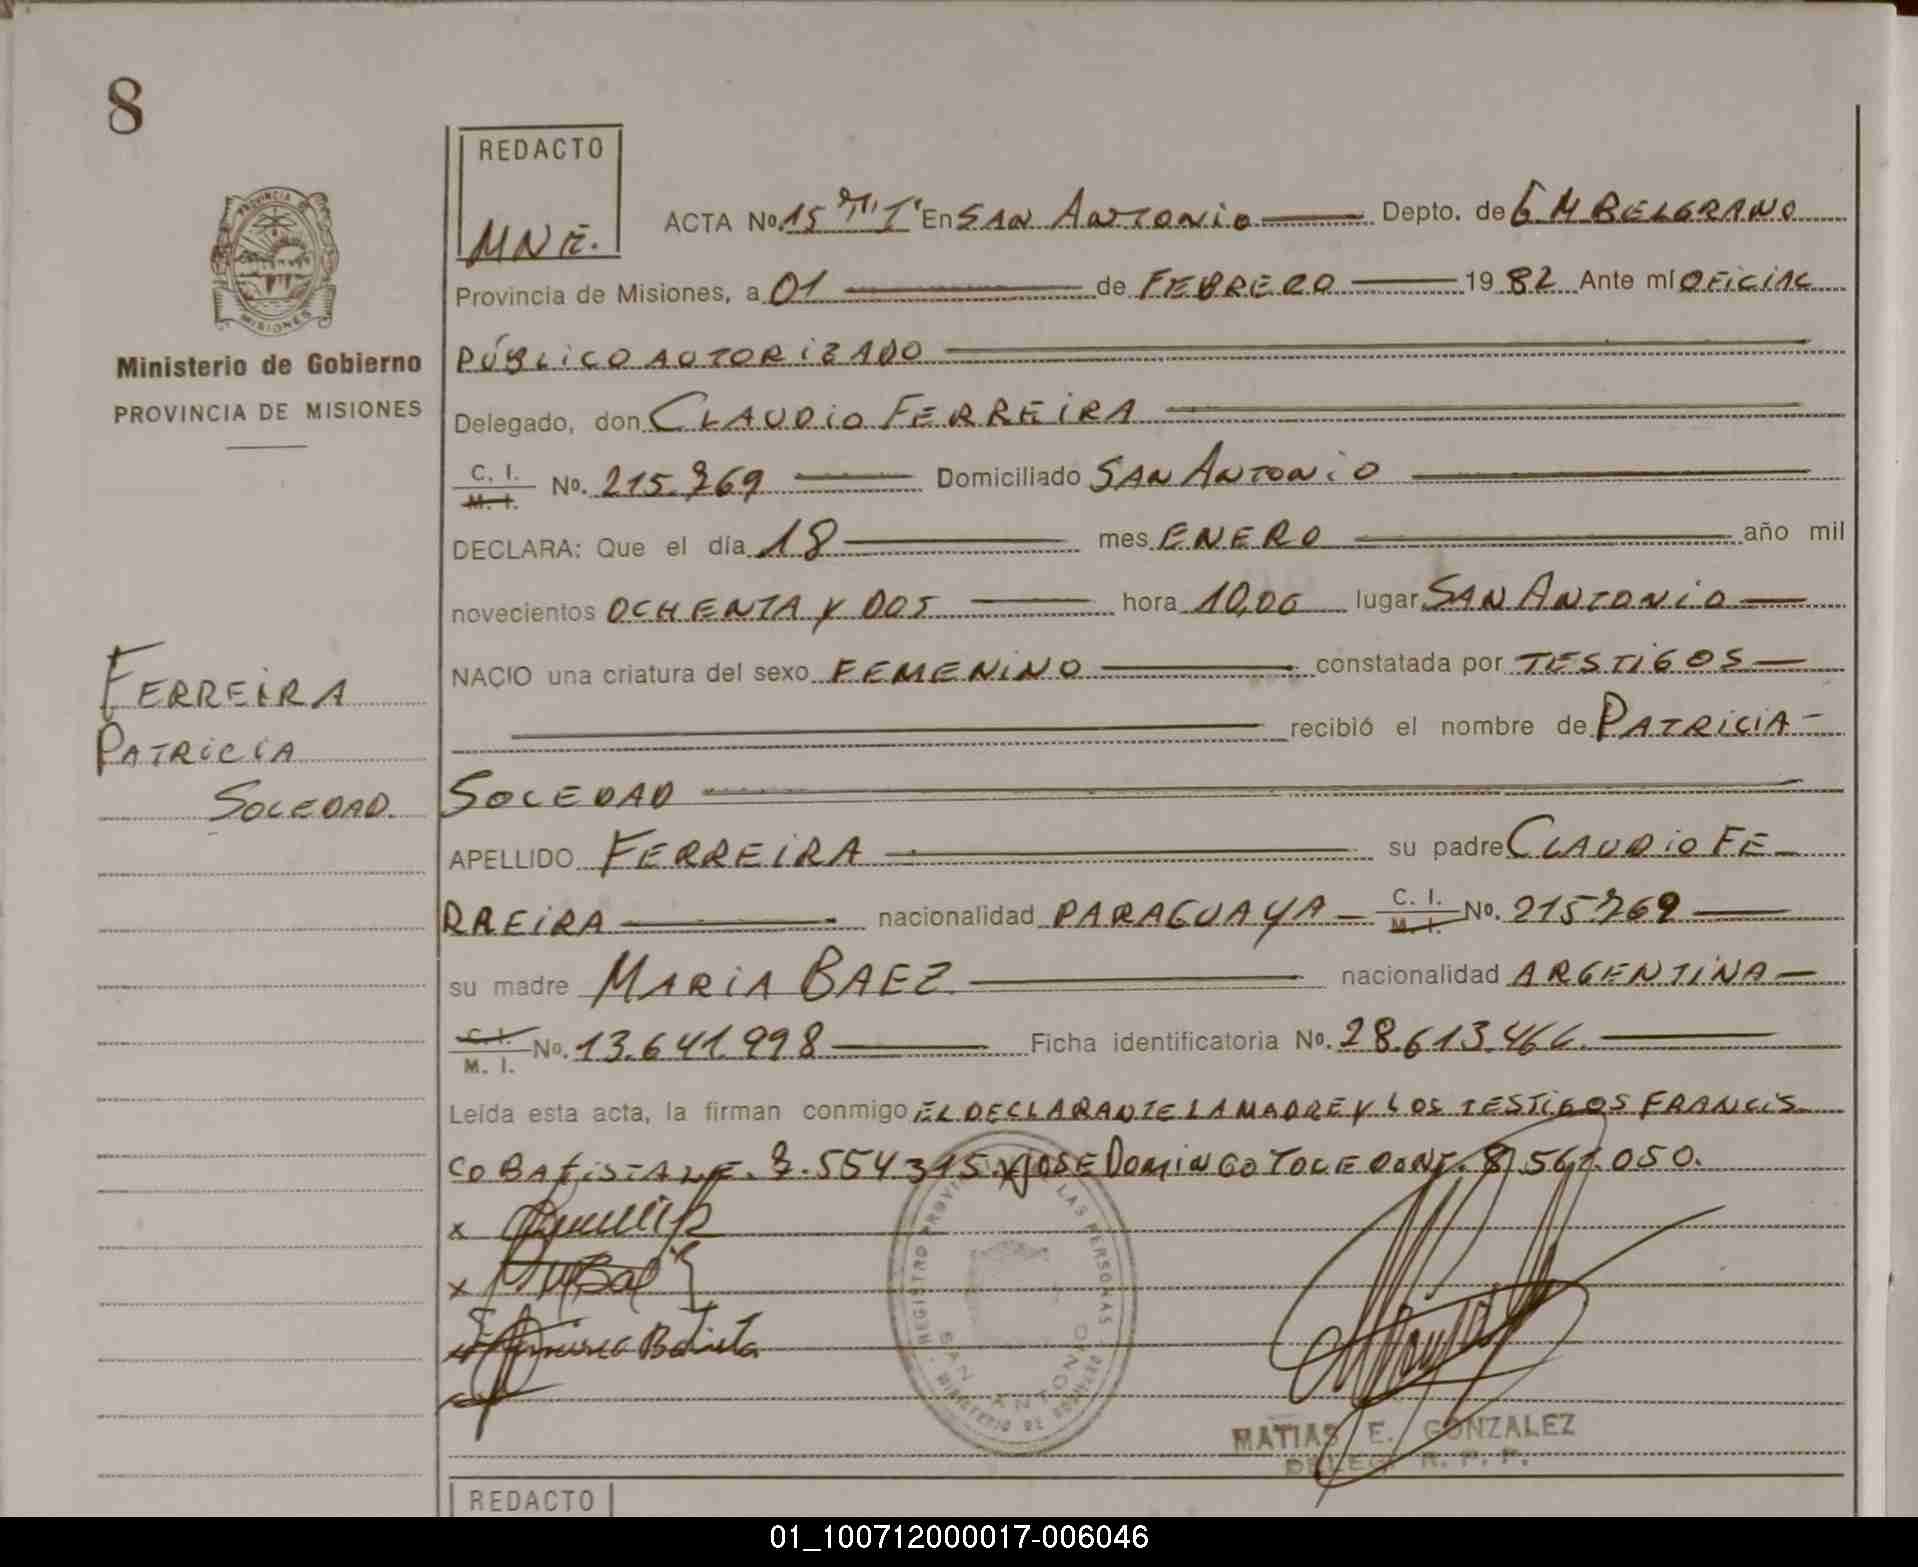 8
REDACTO
MNE.
PROVINCIA DE
MISIONES
Ministerio de Gobierno
PROVINCIA DE MISIONES
ACTA No. 15 "T" I" En SAN ANTONIO Depto. de G M BELGRANO
Provincia de Misiones, a 01 de FEBRERO 1982 Ante mí OFICIAL
PÚBLICO AUTORIZADO
Delegado, don CLAUDIO FERREIRA
C. I. M. I. No. 215.769 Domiciliado SAN ANTONIO
DECLARA: Que el día 18 mes ENERO año mil
novecientos OCHENTA Y DOS hora 10,00 lugar SAN ANTONIO
NACIO una criatura del sexo FEMENINO constatada por TESTIGOS
recibió el nombre de PATRICIA
SOLEDAD
APELLIDO FERREIRA su padre CLAUDIO FE-
RREIRA nacionalidad PARAGUAYA C. I. M. I. No. 215769
su madre MARIA BAEZ nacionalidad ARGENTINA
C. I. M. I. No. 13.641.998 Ficha identificatoria No. 28.613.466.
Leída esta acta, la firman conmigo EL DECLARANTE LA MADRE Y LOS TESTIGOS FRANCIS
CO BATISTA 7.554315 Y JOSE DOMINGO TOLEDO 8.561.050.
x
x
Batista
FERREIRA
PATRICIA
SOLEDAD.
REGISTRO PROVINCIAL LAS PERSONAS
SAN ANTONIO
MINISTERIO DE GOBIERNO
MATIAS E. GONZALEZ
DELEG. R. P. P.
REDACTO
01_100712000017-006046